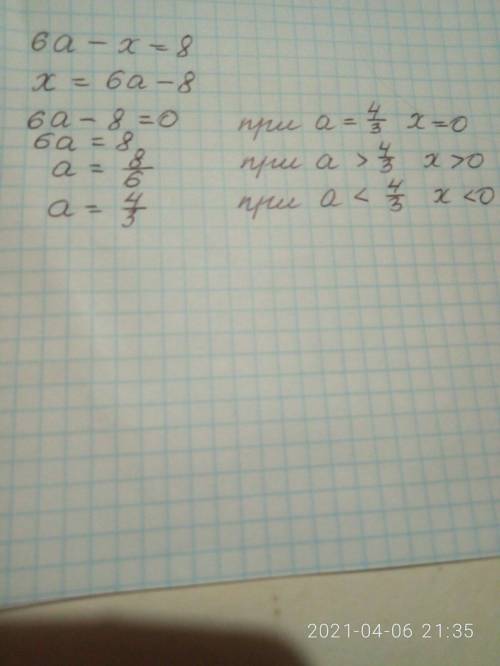 6a - x = 8
x = 6a - 8
6a - 8 = 0 при a = 4/3 x = 0
6a = 8
a = 8/6 при a > 4/3 x > 0
a = 4/3 при a < 4/3 x < 0
2021-04-06 21:35